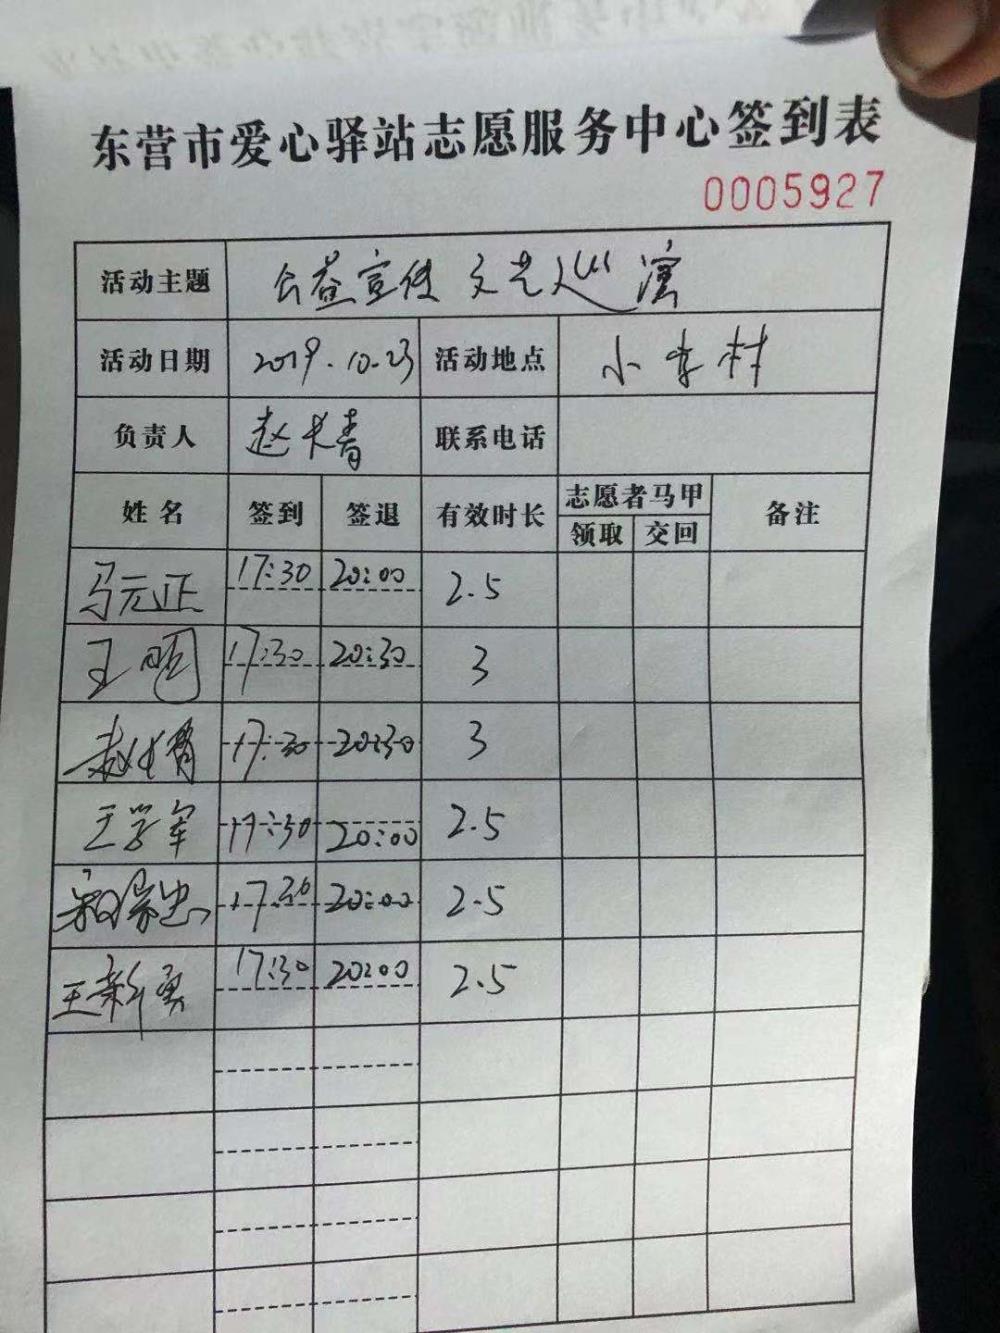 东营市爱心驿站志愿服务中心签到表
0005927
活动主题 公益宣传 文艺巡演
活动日期 2019.10.23 活动地点 小李村
负责人 赵长青 联系电话
姓名 签到 签退 有效时长 志愿者马甲 领取 交回 备注
马元正 17:30 20:00 2.5
王明 17:30 20:30 3
赵长青 17:30 20:30 3
王学军 17:30 20:00 2.5
17:30 20:00 2.5
王新勇 17:30 20:00 2.5